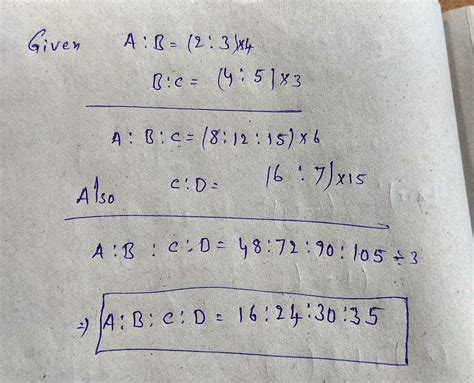 Given A:B = (2:3)×4
B:C = (4:5)×3
A:B:C = (8:12:15)×6
Also C:D = (6:7)×15
A:B:C:D = 48:72:90:105 ÷3
⇒ A:B:C:D = 16:24:30:35